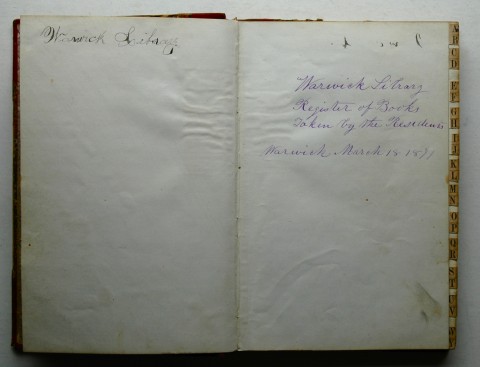 Warwick Library
Warwick Library
Register of Books
Taken by the Residents
Warwick March 18 1871
A
B
C
D
E
F
G
H
I
J
K
L
M
N
O
P
Q
R
S
T
U
V
W